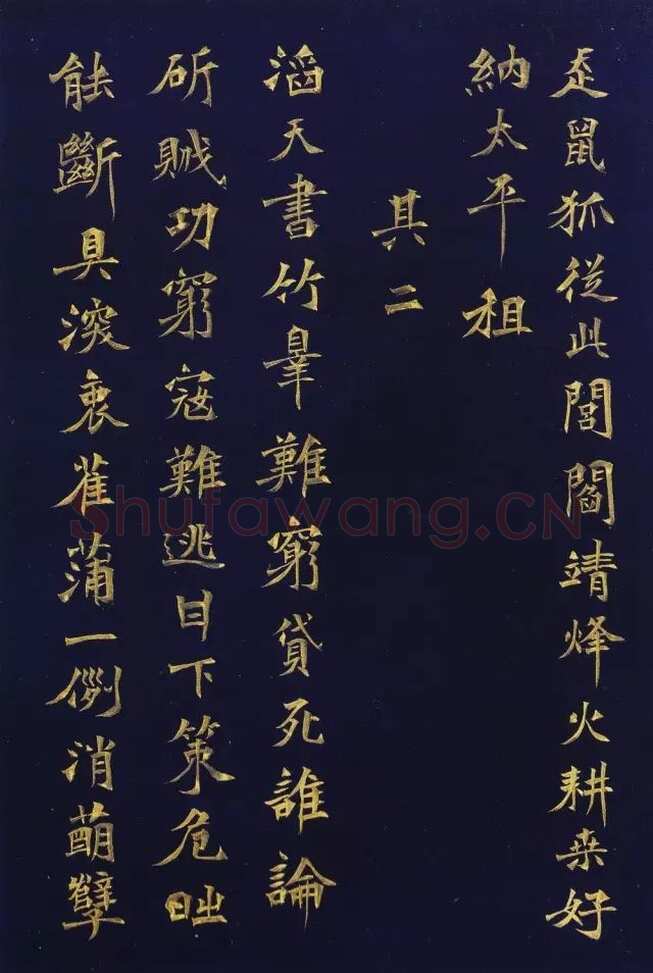 走鼠狐從此閭閻靖烽火耕桒好
納太平租
其二
滔天書竹辠難窮貸死誰論
斫賊功窮寇難逃甘下策危
能斷具深衷萑蒲一例消萌孽
Shufawang.CN